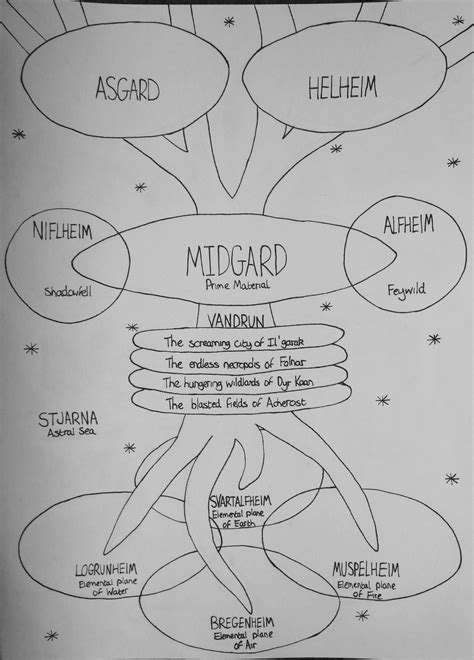 ASGARD
HELHEIM
NIFLHEIM
Shadowfell
ALFHEIM
Feywild
MIDGARD
Prime Material
VANDRUN
The screaming city of Il'garak
The endless necropolis of Folnar
The hungering wildlands of Dyr Kaan
The blasted fields of Acherost
STJARNA
Astral Sea
SVARTALFHEIM
Elemental plane
of Earth
LOGRUNHEIM
Elemental plane
of Water
MUSPELHEIM
Elemental plane
of Fire
BREGENHEIM
Elemental plane
of Air